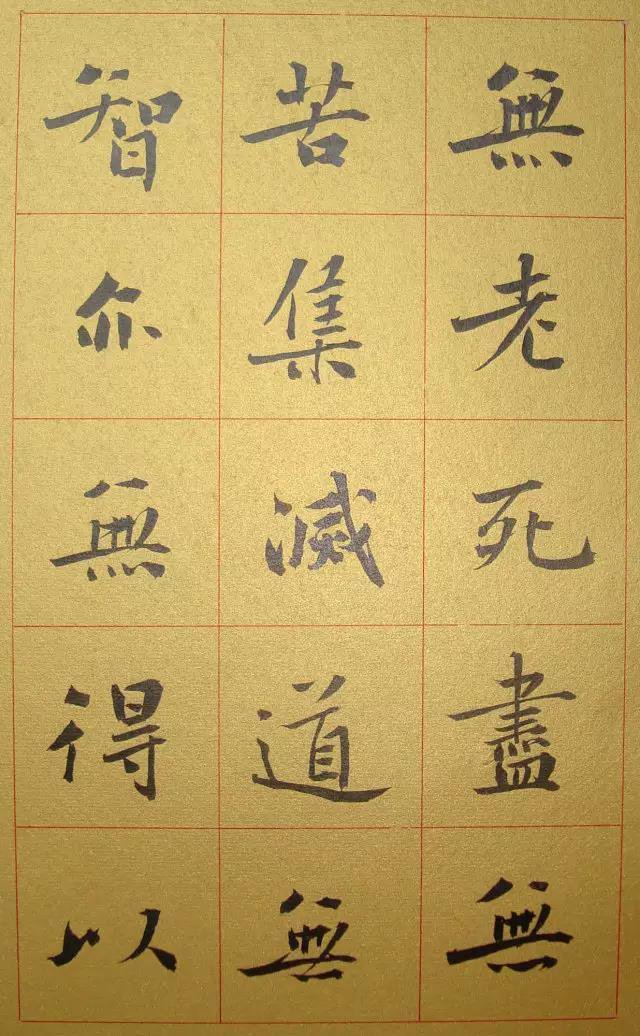 無老死盡無
苦集滅道無
智亦無得以